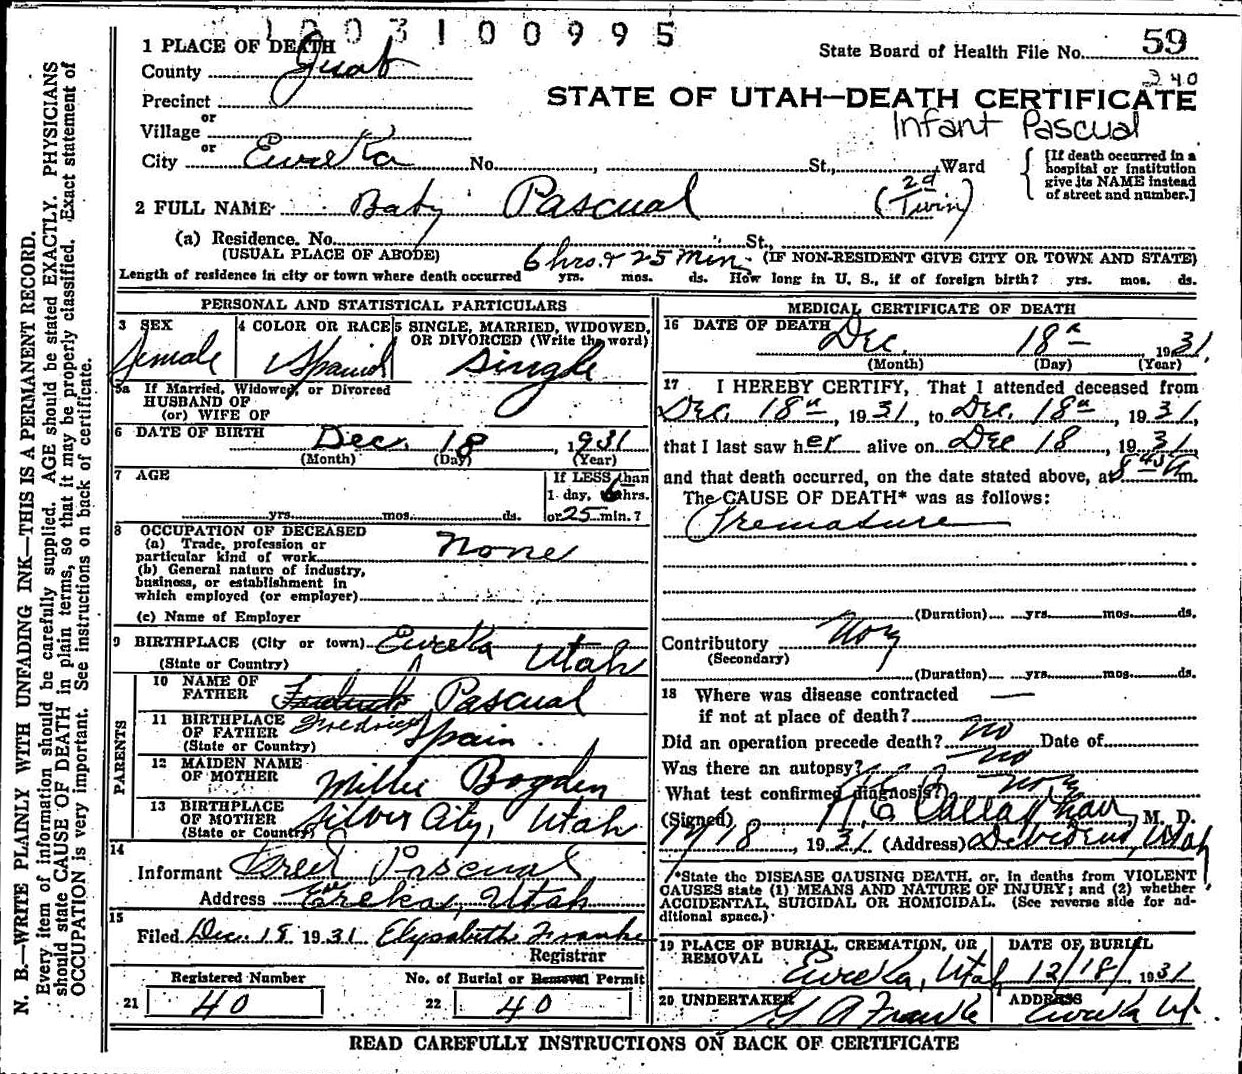 1003100995
1 PLACE OF DEATH
State Board of Health File No. 59
County Juab
340
Precinct
STATE OF UTAH—DEATH CERTIFICATE
or
Village
Infant Pascual
or
City Eureka No. , St., Ward
[If death occurred in a
hospital or institution
give its NAME instead
of street and number.]
2 FULL NAME Baby Pascual (2d Twin)
(a) Residence. No. St.,
(USUAL PLACE OF ABODE) (IF NON-RESIDENT GIVE CITY OR TOWN AND STATE)
6 hrs. & 25 Min.
Length of residence in city or town where death occurred yrs. mos. ds. How long in U. S., if of foreign birth? yrs. mos. ds.
PERSONAL AND STATISTICAL PARTICULARS
3 SEX 4 COLOR OR RACE 5 SINGLE, MARRIED, WIDOWED,
OR DIVORCED (Write the word)
Female Spanid Single
5a If Married, Widowed, or Divorced
HUSBAND OF
(or) WIFE OF
6 DATE OF BIRTH Dec. 18, 1931
(Month) (Day) (Year)
7 AGE If LESS than
1 day, 6 hrs.
yrs. mos. ds. or 25 min.?
8 OCCUPATION OF DECEASED
(a) Trade, profession or
particular kind of work None
(b) General nature of industry,
business, or establishment in
which employed (or employer)
(c) Name of Employer
9 BIRTHPLACE (City or town) Eureka Utah
(State or Country)
PARENTS
10 NAME OF
FATHER Frederick Pascual
11 BIRTHPLACE
OF FATHER Fredrick Spain
(State or Country)
12 MAIDEN NAME
OF MOTHER Millie Bogden
13 BIRTHPLACE
OF MOTHER Silver City, Utah
(State or Country)
14
Informant Fred Pascual
Address Eureka, Utah
15
Filed Dec. 18 1931 Elysabeth Franke
Registrar
Registered Number No. of Burial or Removal Permit
21 40 22 40
MEDICAL CERTIFICATE OF DEATH
16 DATE OF DEATH Dec. 18th 1931
(Month) (Day) (Year)
17 I HEREBY CERTIFY, That I attended deceased from
Dec. 18th, 1931, to Dec. 18th, 1931,
that I last saw her alive on Dec 18, 1931,
and that death occurred, on the date stated above, at m.
The CAUSE OF DEATH* was as follows:
Premature
(Duration) yrs. mos. ds.
Contributory
(Secondary)
(Duration) yrs. mos. ds.
18 Where was disease contracted —
if not at place of death?
Did an operation precede death? No Date of
Was there an autopsy? No
What test confirmed diagnosis?
(Signed) Callaghan, M. D.
12/18, 1931 (Address) Utah
*State the DISEASE CAUSING DEATH, or, in deaths from VIOLENT
CAUSES state (1) MEANS AND NATURE OF INJURY; and (2) whether
ACCIDENTAL, SUICIDAL OR HOMICIDAL. (See reverse side for ad-
ditional space.)
19 PLACE OF BURIAL, CREMATION, OR
REMOVAL DATE OF BURIAL
Eureka, Utah 12/18/1931
20 UNDERTAKER ADDRESS
G A Franke Eureka Ut.
READ CAREFULLY INSTRUCTIONS ON BACK OF CERTIFICATE
N. B.—WRITE PLAINLY WITH UNFADING INK—THIS IS A PERMANENT RECORD.
Every item of information should be carefully supplied. AGE should be stated EXACTLY. PHYSICIANS
should state CAUSE OF DEATH in plain terms, so that it may be properly classified. Exact statement of
OCCUPATION is very important. See instructions on back of certificate.